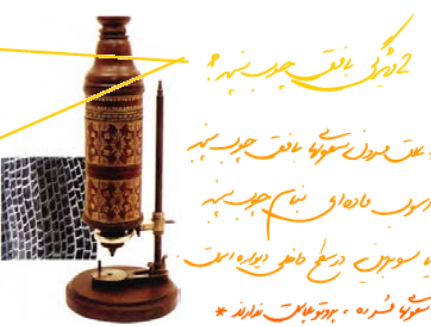 2 ویژگی بافت چوب پنبه ؟
علت مردن سلولهای بافت چوب پنبه
رسوب ماده‌ای بنام چوب پنبه
یا سوبرین در سطح داخلی دیواره است
سلولها مرده ، پروتوپلاست ندارند *